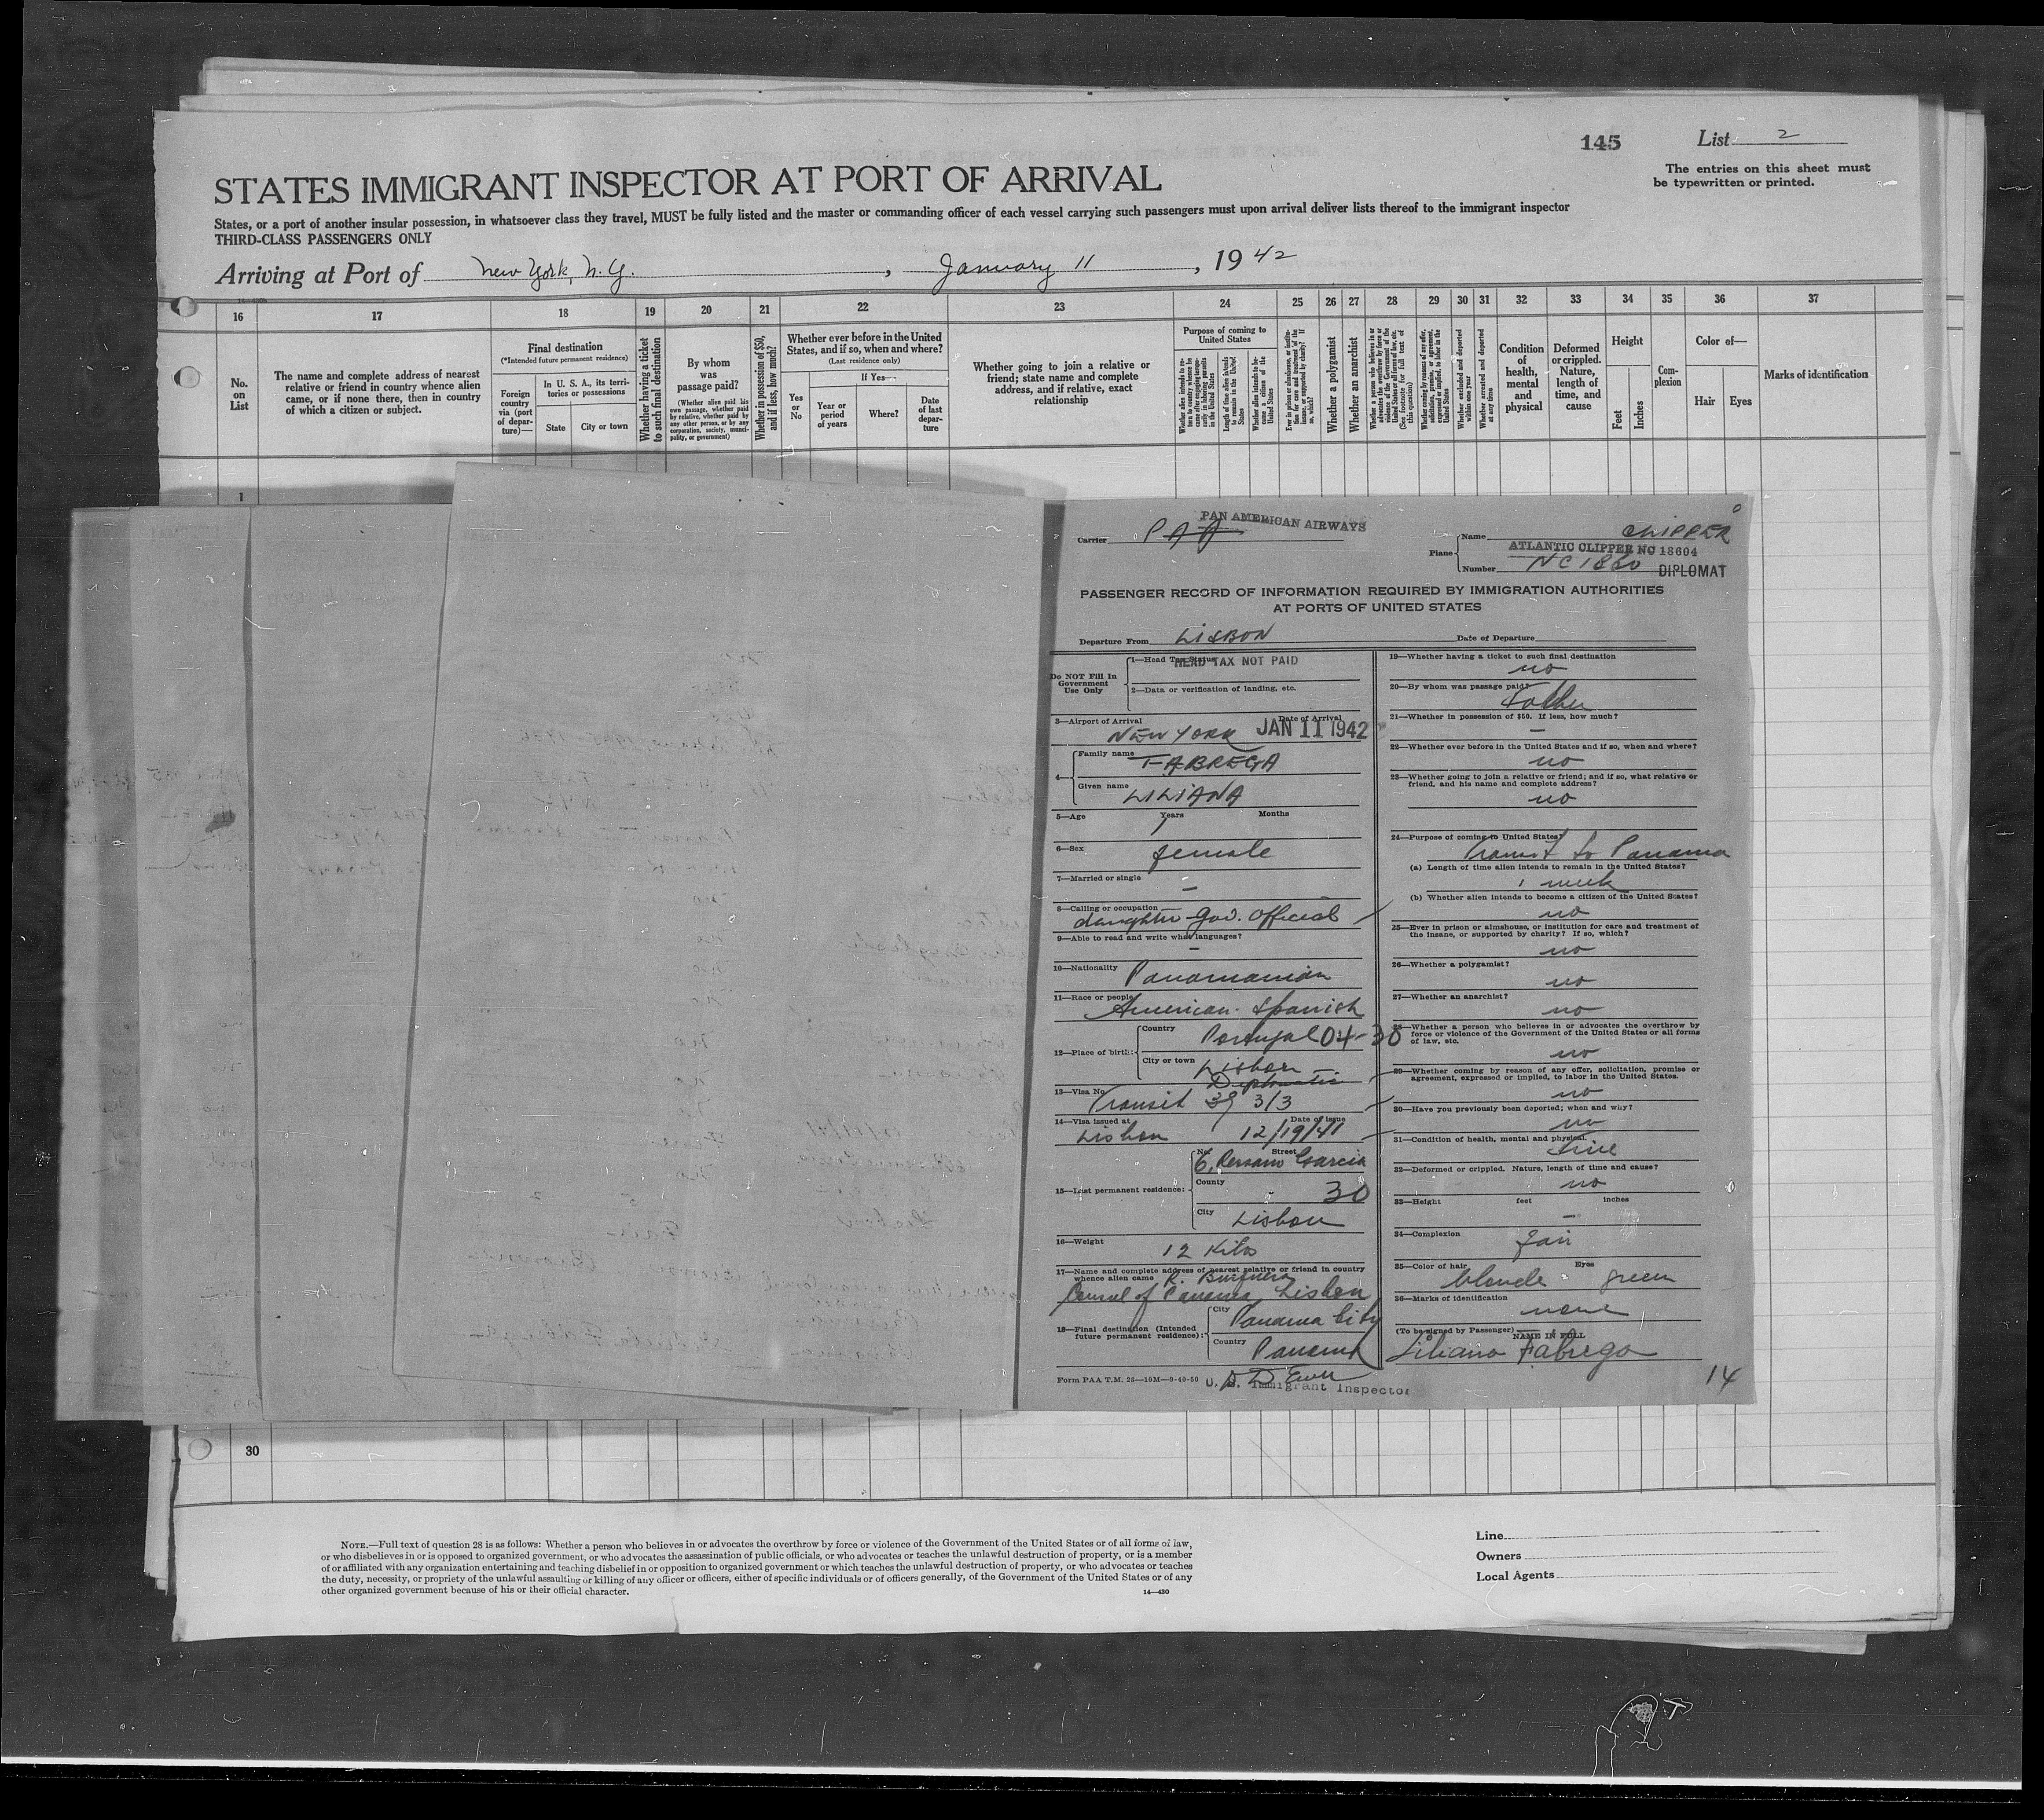 145
List 2
The entries on this sheet must
be typewritten or printed.
STATES IMMIGRANT INSPECTOR AT PORT OF ARRIVAL
States, or a port of another insular possession, in whatsoever class they travel, MUST be fully listed and the master or commanding officer of each vessel carrying such passengers must upon arrival deliver lists thereof to the immigrant inspector
THIRD-CLASS PASSENGERS ONLY
Arriving at Port of New York, N.Y., January 11, 1942
16 17 18 19 20 21 22 23 24 25 26 27 28 29 30 31 32 33 34 35 36 37
No.
on
List
The name and complete address of nearest
relative or friend in country whence alien
came, or if none there, then in country
of which a citizen or subject.
Final destination
(*Intended future permanent residence)
Foreign
country
via (port
of depar-
ture)—
In U. S. A., its terri-
tories or possessions
State
City or town
Whether having a ticket
to such final destination
By whom
was
passage paid?
(Whether alien paid his
own passage, whether paid
by relative, whether paid by
any other person, or by any
corporation, society, munici-
pality, or government)
Whether in possession of $50,
and if less, how much?
Whether ever before in the United
States, and if so, when and where?
(Last residence only)
If Yes—
Yes
or
No
Year or
period
of years
Where?
Date
of last
depar-
ture
Whether going to join a relative or
friend; state name and complete
address, and if relative, exact
relationship
Purpose of coming to
United States
Whether a polygamist
Whether an anarchist
Condition
of
health,
mental
and
physical
Deformed
or crippled.
Nature,
length of
time, and
cause
Height
Feet
Inches
Com-
plexion
Color of—
Hair
Eyes
Marks of identification
1
PAN AMERICAN AIRWAYS
Carrier PAA
Plane
Name CLIPPER
ATLANTIC CLIPPER NC 18604
Number NC 1860
DIPLOMAT
PASSENGER RECORD OF INFORMATION REQUIRED BY IMMIGRATION AUTHORITIES
AT PORTS OF UNITED STATES
Departure From LISBON Date of Departure
Do NOT Fill In
Government
Use Only
1—Head Tax Status
HEAD TAX NOT PAID
2—Data or verification of landing, etc.
3—Airport of Arrival Date of Arrival
NEW YORK JAN 11 1942
4—
Family name FABREGA
Given name LILIANA
5—Age Years Months
6—Sex female
7—Married or single –
8—Calling or occupation
daughter Gov. official
9—Able to read and write what languages?
–
10—Nationality Panamanian
11—Race or people
American-Spanish
12—Place of birth:
Country Portugal 04-30
City or town Lisbon
Diplomatic
13—Visa No.
Transit 39 3/3
14—Visa issued at Date of issue
Lisbon 12/19/41
15—Last permanent residence:
No. Street
6, Garcia
County – 30
City Lisbon
16—Weight 12 Kilos
17—Name and complete address of nearest relative or friend in country
whence alien came R.
Consul of Panama, Lisbon
18—Final destination (Intended
future permanent residence):
City Panama City
Country Panama
Form PAA T.M. 28—10M—9-40-50
U. S. Immigrant Inspector
19—Whether having a ticket to such final destination
no
20—By whom was passage paid?
Father
21—Whether in possession of $50. If less, how much?
–
22—Whether ever before in the United States and if so, when and where?
no
23—Whether going to join a relative or friend; and if so, what relative or
friend, and his name and complete address?
no
24—Purpose of coming to United States?
Transit to Panama
(a) Length of time alien intends to remain in the United States?
1 week
(b) Whether alien intends to become a citizen of the United States?
no
25—Ever in prison or almshouse, or institution for care and treatment of
the insane, or supported by charity? If so, which?
no
26—Whether a polygamist?
no
27—Whether an anarchist?
no
28—Whether a person who believes in or advocates the overthrow by
force or violence of the Government of the United States or all forms
of law, etc.
no
29—Whether coming by reason of any offer, solicitation, promise or
agreement, expressed or implied, to labor in the United States.
no
30—Have you previously been deported; when and why?
no
31—Condition of health, mental and physical.
Fine
32—Deformed or crippled. Nature, length of time and cause?
no
33—Height feet inches
–
34—Complexion fair
35—Color of hair Eyes
blonde green
36—Marks of identification
none
(To be signed by Passenger)
NAME IN FULL
Liliana Fabrega
14
30
NOTE.—Full text of question 28 is as follows: Whether a person who believes in or advocates the overthrow by force or violence of the Government of the United States or of all forms of law,
or who disbelieves in or is opposed to organized government, or who advocates the assassination of public officials, or who advocates or teaches the unlawful destruction of property, or is a member
of or affiliated with any organization entertaining and teaching disbelief in or opposition to organized government or which teaches the unlawful destruction of property, or who advocates or teaches
the duty, necessity, or propriety of the unlawful assaulting or killing of any officer or officers, either of specific individuals or of officers generally, of the Government of the United States or of any
other organized government because of his or their official character.
14—430
Line
Owners
Local Agents